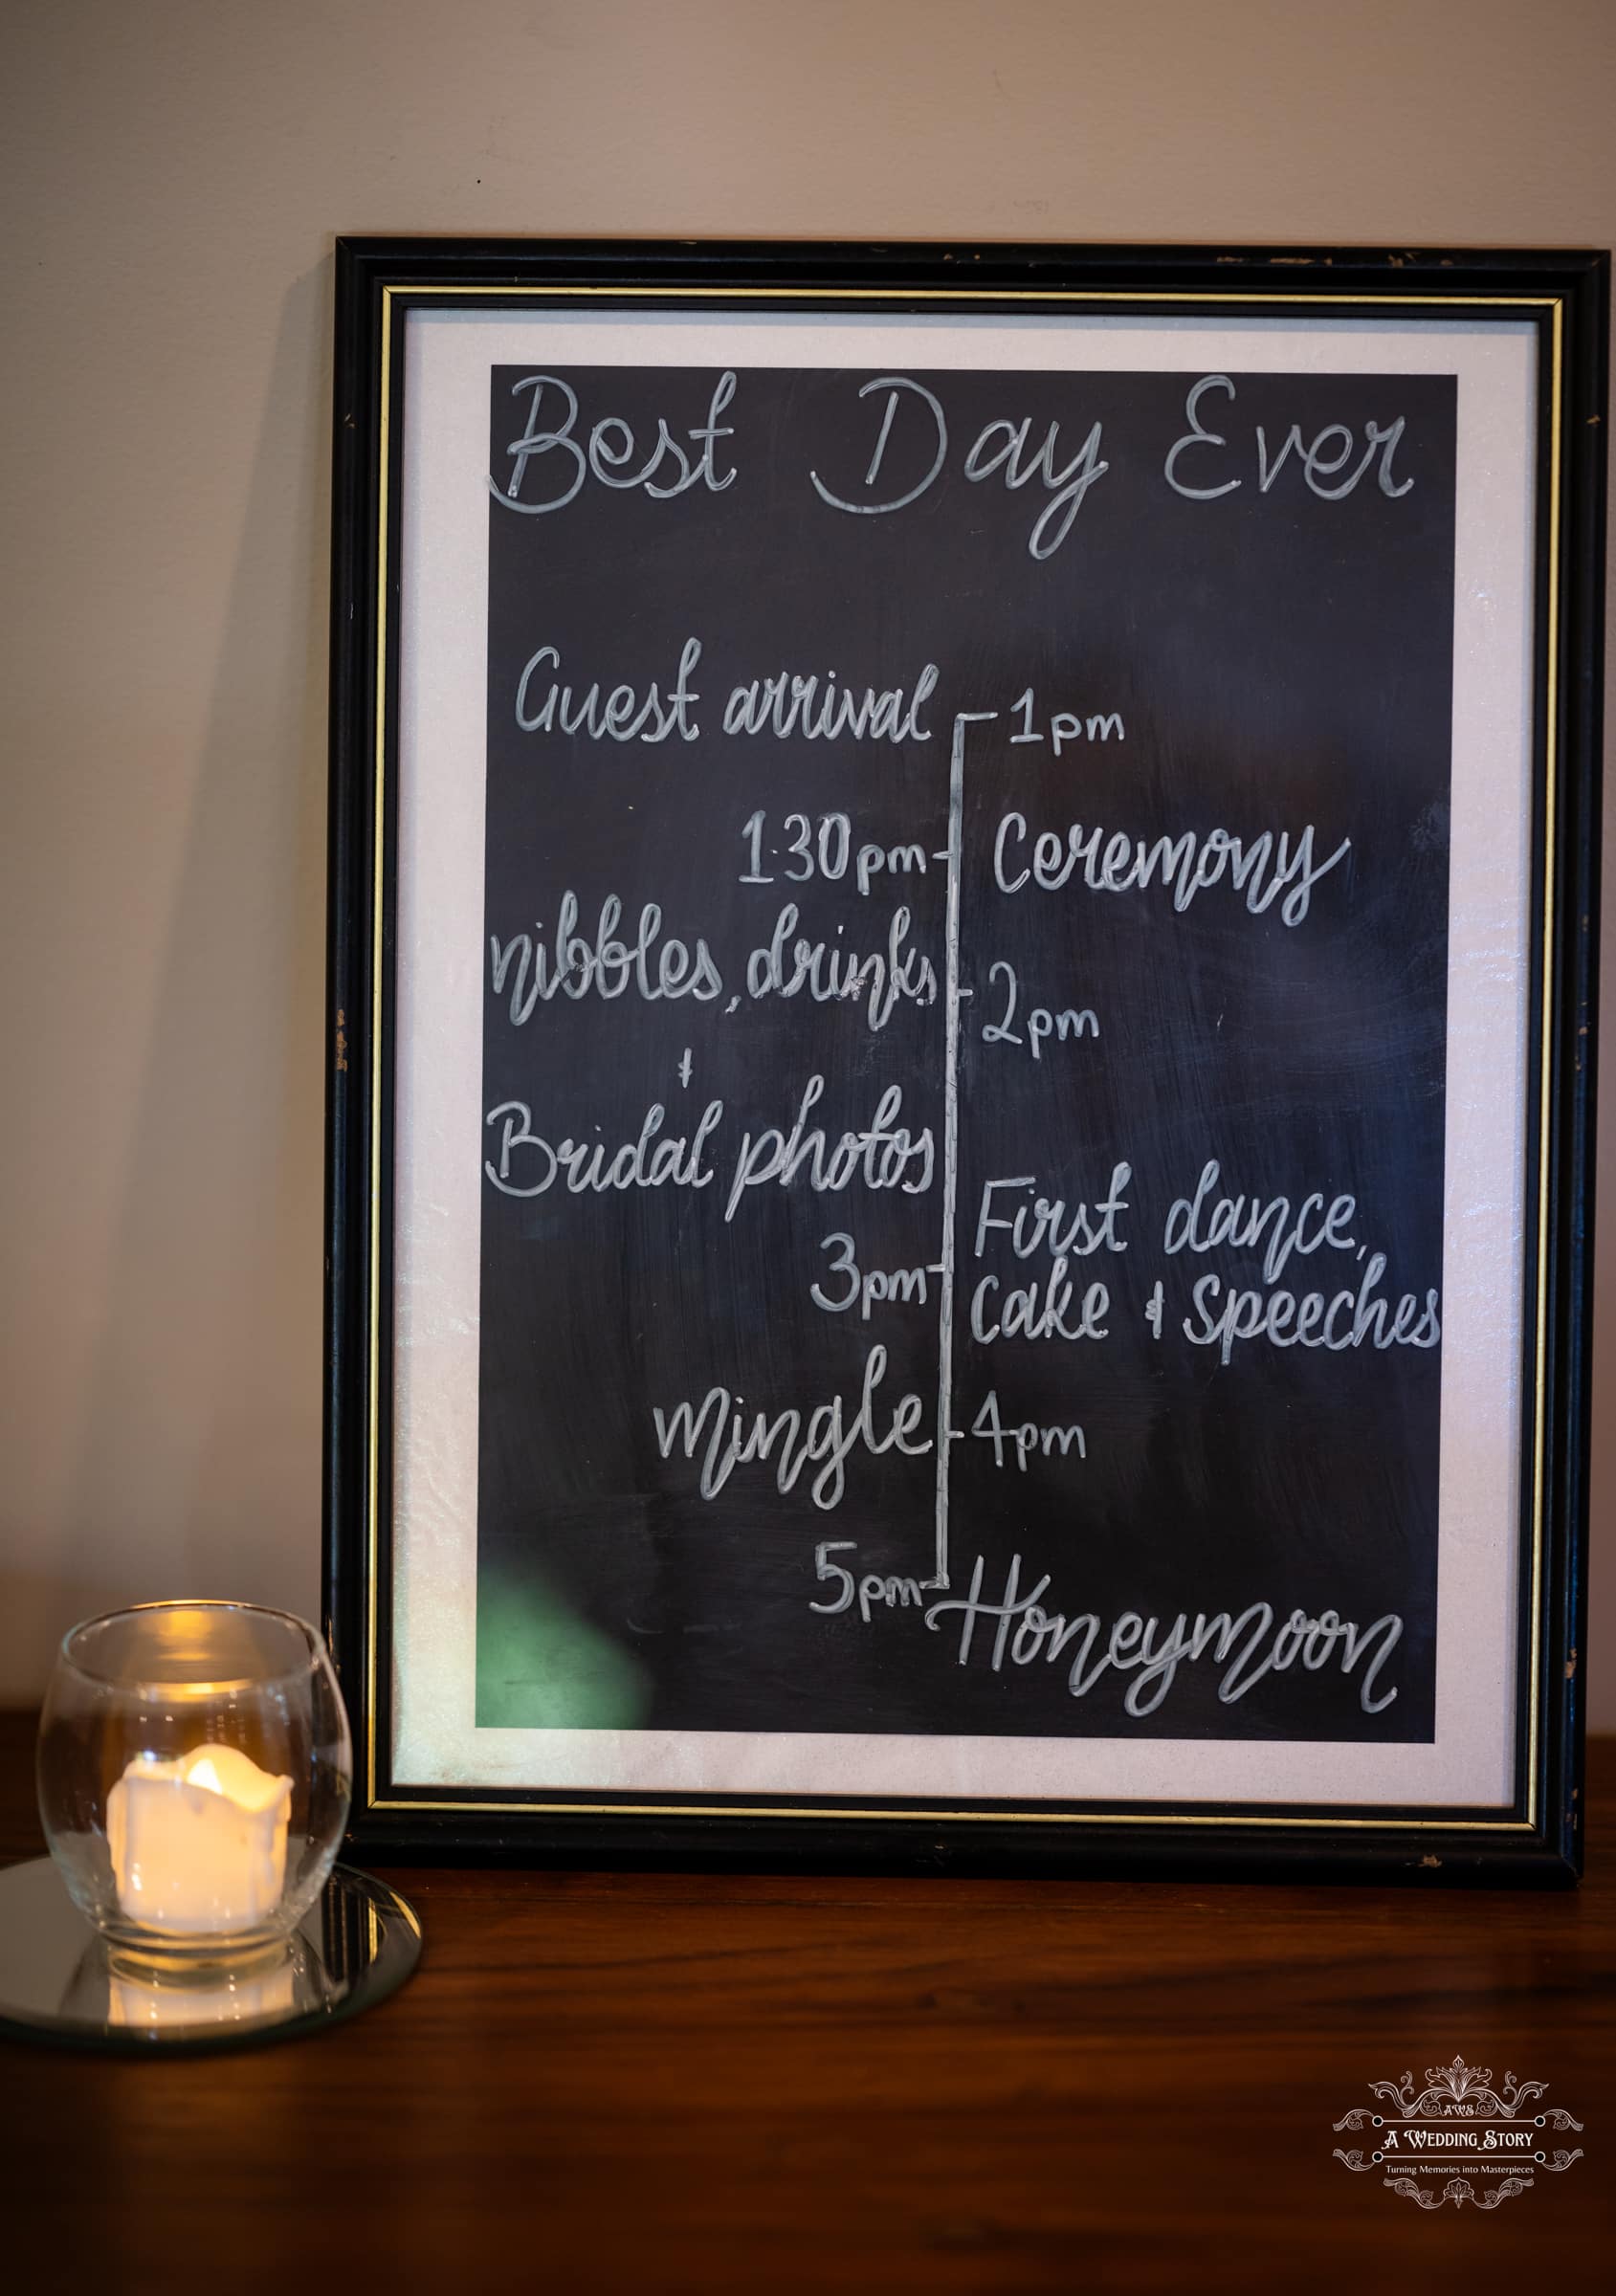 Best Day Ever
Guest arrival 1pm
1.30pm Ceremony
nibbles, drinks 2pm
&
Bridal photos
First dance,
3pm cake & Speeches
mingle 4pm
5pm Honeymoon
AWS
A WEDDING STORY
Turning Memories into Masterpieces